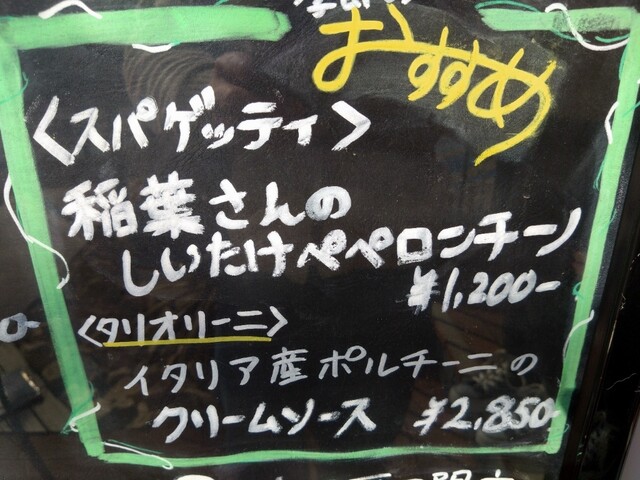 おすすめ
<スパゲッティ>
稲葉さんの
しいたけペペロンチーノ
¥1,200-
<タリオリーニ>
イタリア産ポルチーニの
クリームソース ¥2,850-